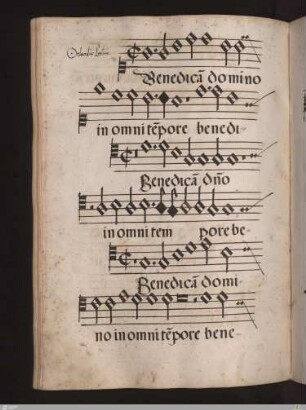 Orlandus Lassus
Benedicã domino
in omni tẽpore benedi-
Benedicã dño
in omni tem pore be-
Benedicã domi-
no in omni tẽpore bene-